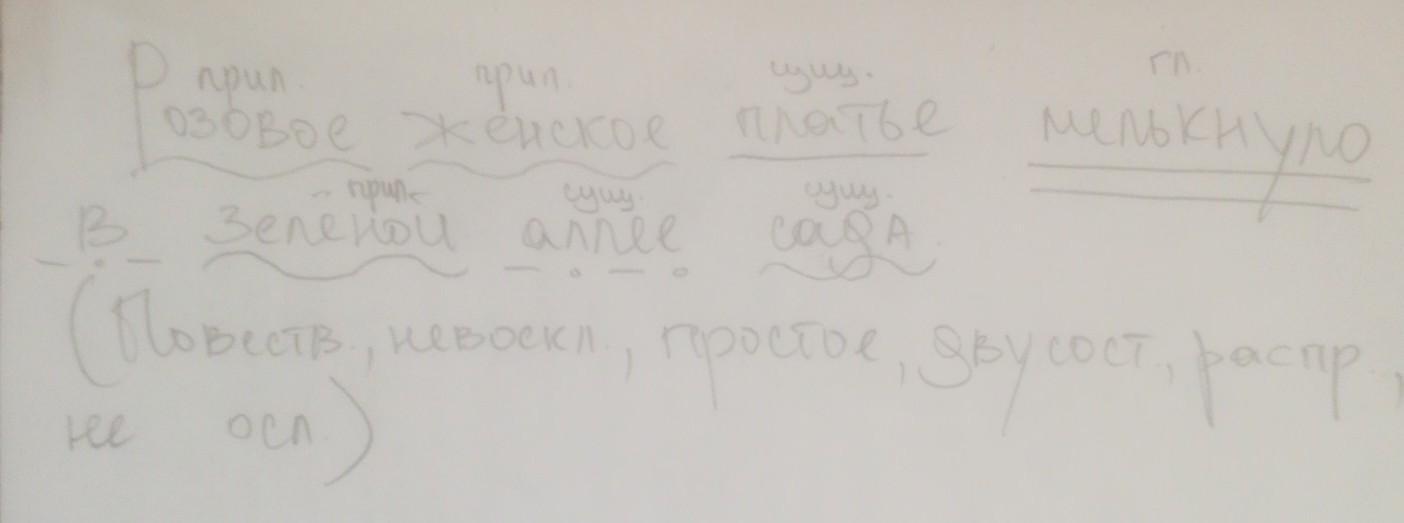 прил. прил. сущ. гл.
Розовое женское платье мелькнуло
прил. сущ. сущ.
в зелёной аллее сада.
(Повеств., невоскл., простое, двусост., распр.,
не осл.)